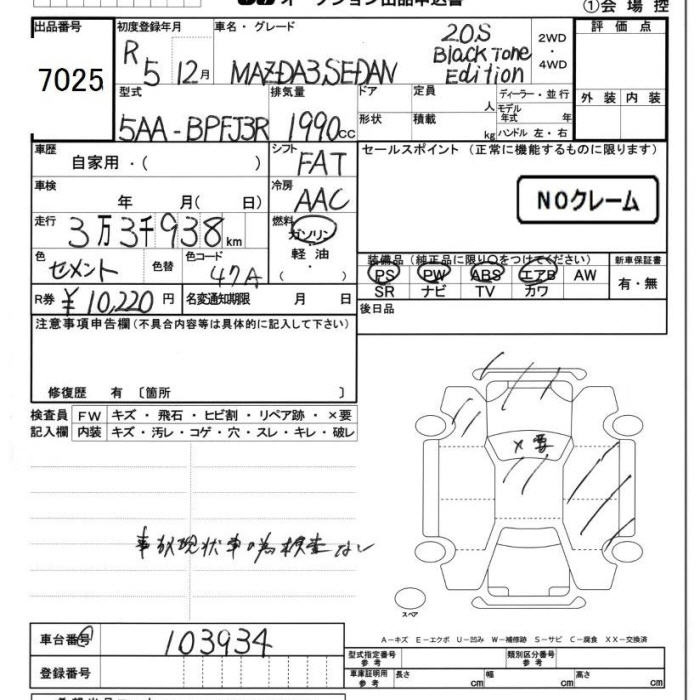 オークション出品申込書 ①会場控
出品番号 初度登録年月 車名・グレード 評価点
7025 R5 12月 MAZDA3,SEDAN 20S Black Tone Edition 2WD・4WD
外装 内装
型式 排気量 ドア 定員 人 ディーラー・並行
5AA-BPFJ3R 1990cc 形状 積載 kg モデル年式 年
ハンドル 左・右
車歴 自家用・( ) シフト FAT セールスポイント (正常に機能するものに限ります)
車検 年 月( 日) 冷房 AAC NOクレーム
走行 3万3千938km 燃料 ガソリン・軽油・( )
装備品(純正品に限り○をつけてください) 新車保証書
色 セメント 色替 色コード 47A
PS PW ABS エアB AW 有・無
SR ナビ TV カワ
R券 ¥10,220円 名変通知期限 月 日 後日品
注意事項申告欄(不具合内容等は具体的に記入して下さい)
修復歴 有 〔箇所 〕
検査員 FW キズ・飛石・ヒビ割・リペア跡・×要
記入欄 内装 キズ・汚レ・コゲ・穴・スレ・キレ・破レ
×要
事故現状車の為検査なし
スペア
A-キズ E-エクボ U-凹み W-補修跡 S-サビ C-腐食 XX-交換済
車台番号 103934
型式指定番号 参考 類別区分番号 参考
登録番号 車庫証明用 参考 長さ cm 幅 cm 高さ cm